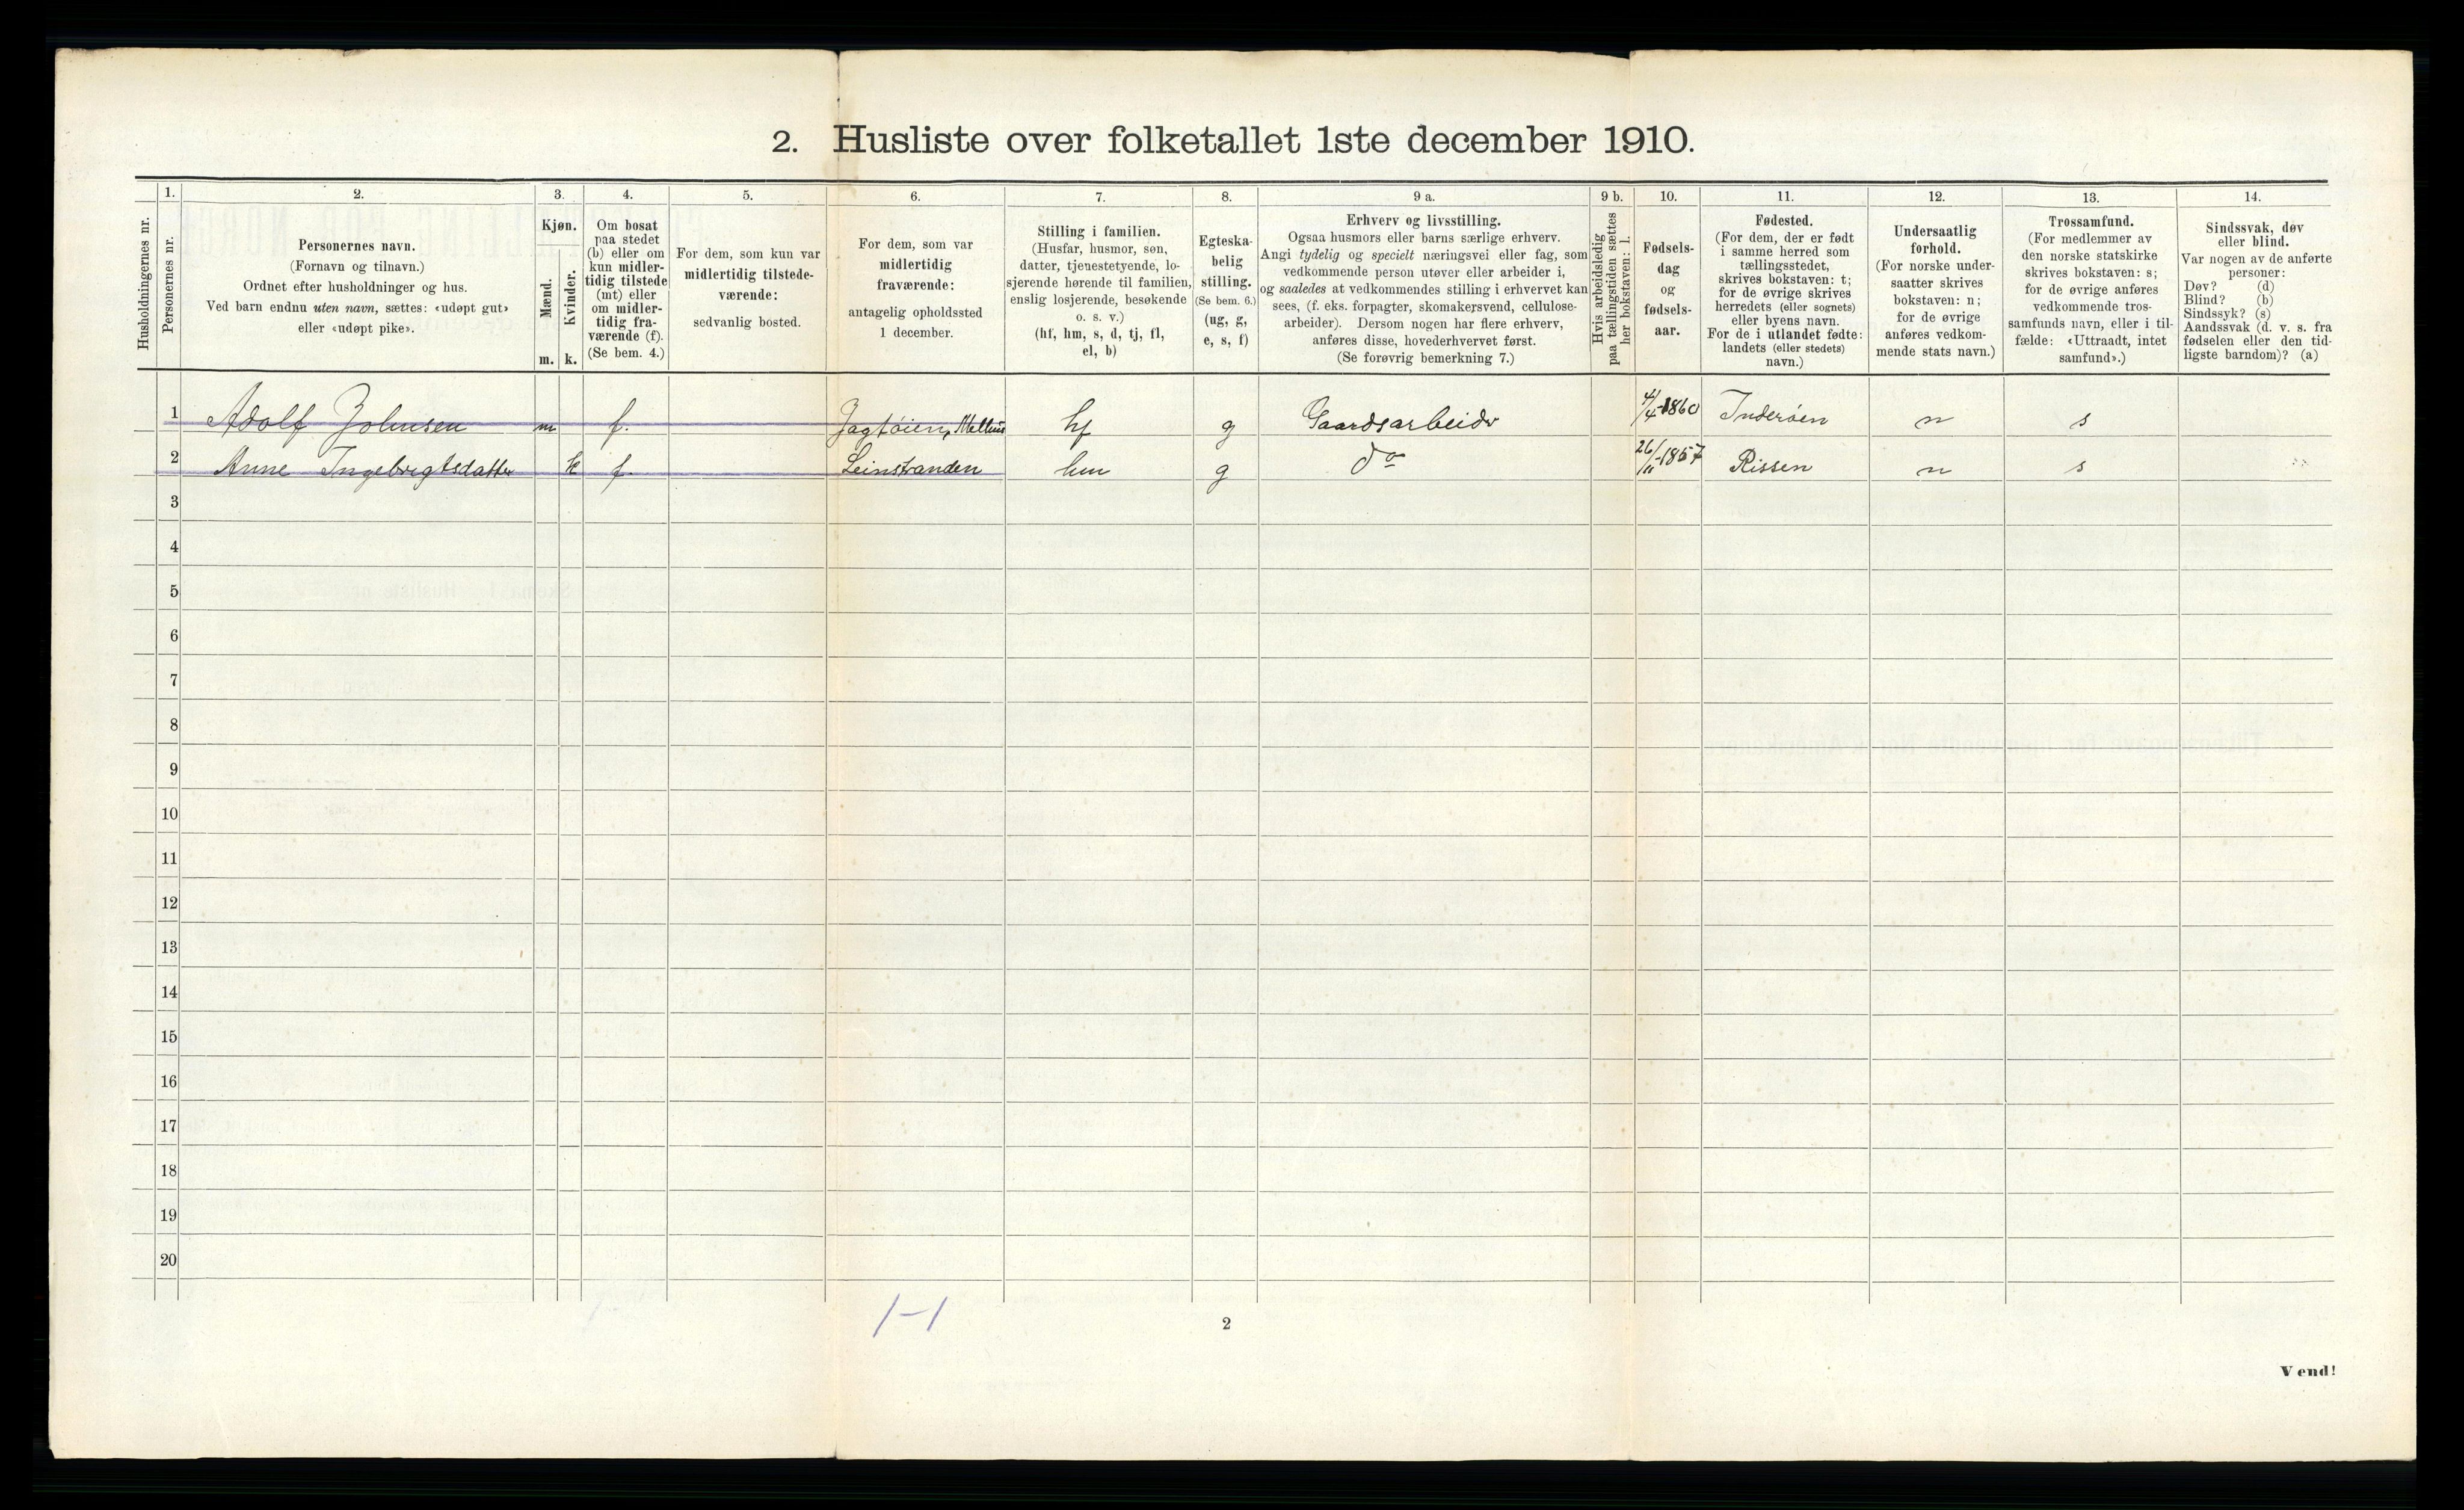 2. Husliste over folketallet 1ste december 1910.
1. 2. 3. 4. 5. 6. 7. 8. 9 a. 9 b. 10. 11. 12. 13. 14.
Husholdningernes nr.
Personernes nr.
Personernes navn.
(Fornavn og tilnavn.)
Ordnet efter husholdninger og hus.
Ved barn endnu uten navn, sættes: «udøpt gut»
eller «udøpt pike».
Kjøn.
Mænd.
Kvinder.
m. k.
Om bosat
paa stedet
(b) eller om
kun midler-
tidig tilstede
(mt) eller
om midler-
tidig fra-
værende (f).
(Se bem. 4.)
For dem, som kun var
midlertidig tilstede-
værende:
sedvanlig bosted.
For dem, som var
midlertidig
fraværende:
antagelig opholdssted
1 december.
Stilling i familien.
(Husfar, husmor, søn,
datter, tjenestetyende, lo-
sjerende hørende til familien,
enslig losjerende, besøkende
o. s. v.)
(hf, hm, s, d, tj, fl,
el, b)
Egteska-
belig
stilling.
(Se bem. 6.)
(ug, g,
e, s, f)
Erhverv og livsstilling.
Ogsaa husmors eller barns særlige erhverv.
Angi tydelig og specielt næringsvei eller fag, som
vedkommende person utøver eller arbeider i,
og saaledes at vedkommendes stilling i erhvervet kan
sees, (f. eks. forpagter, skomakersvend, cellulose-
arbeider). Dersom nogen har flere erhverv,
anføres disse, hovederhvervet først.
(Se forøvrig bemerkning 7.)
Hvis arbeidsledig
paa tællingstiden sættes
her bokstaven: l.
Fødsels-
dag
og
fødsels-
aar.
Fødested.
(For dem, der er født
i samme herred som
tællingsstedet,
skrives bokstaven: t;
for de øvrige skrives
herredets (eller sognets)
eller byens navn.
For de i utlandet fødte:
landets (eller stedets)
navn.)
Undersaatlig
forhold.
(For norske under-
saatter skrives
bokstaven: n;
for de øvrige
anføres vedkom-
mende stats navn.)
Trossamfund.
(For medlemmer av
den norske statskirke
skrives bokstaven: s;
for de øvrige anføres
vedkommende tros-
samfunds navn, eller i til-
fælde: «Uttraadt, intet
samfund».)
Sindssvak, døv
eller blind.
Var nogen av de anførte
personer:
Døv? (d)
Blind? (b)
Sindssyk? (s)
Aandssvak (d. v. s. fra
fødselen eller den tid-
ligste barndom)? (a)
1 Adolf Johnsen m f. Jagtøien, Melhus hf g Gaardsarbeider 4/4-1860 Inderøen n s
2 Anne Ingebrigtsdatter k f. Leinstranden hm g do 26/11-1857 Rissen n s
3
4
5
6
7
8
9
10
11
12
13
14
15
16
17
18
19
20
1-1
2
Vend!